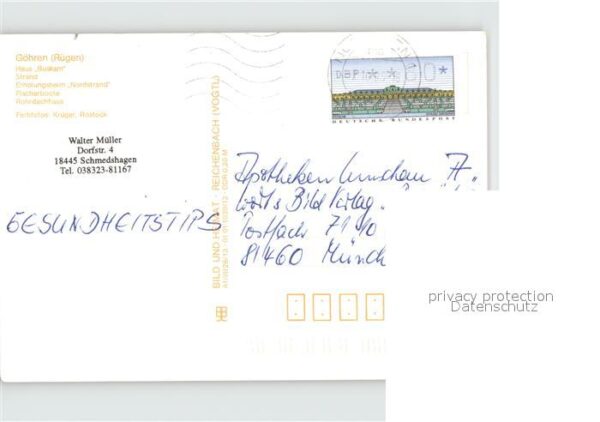 Göhren (Rügen)
Haus „Boskam"
Strand
Erholungsheim „Nordstrand"
Fischerboote
Rohrdachhaus
Farbfotos: Krüger, Rostock
Walter Müller
Dorfstr. 4
18445 Schmedshagen
Tel. 038323-81167
GESUNDHEITSTIPS
BILD UND HEIMAT · REICHENBACH (VOGTL)
DBP
80*
DEUTSCHE BUNDESPOST
Apotheken Umschau "A"
Wort & Bild Verlag
Postfach
81460 Münch
privacy protection
Datenschutz